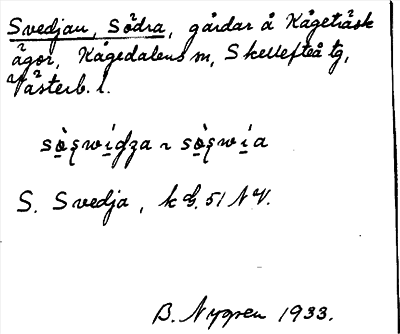 Svedjan, Södra, gårdar å Kågeträsk
ägor, Kågedalens m, Skellefteå tg,
Västerb. l.
S. Svedja, k bl. 51 NV.
B. Nygren 1933.